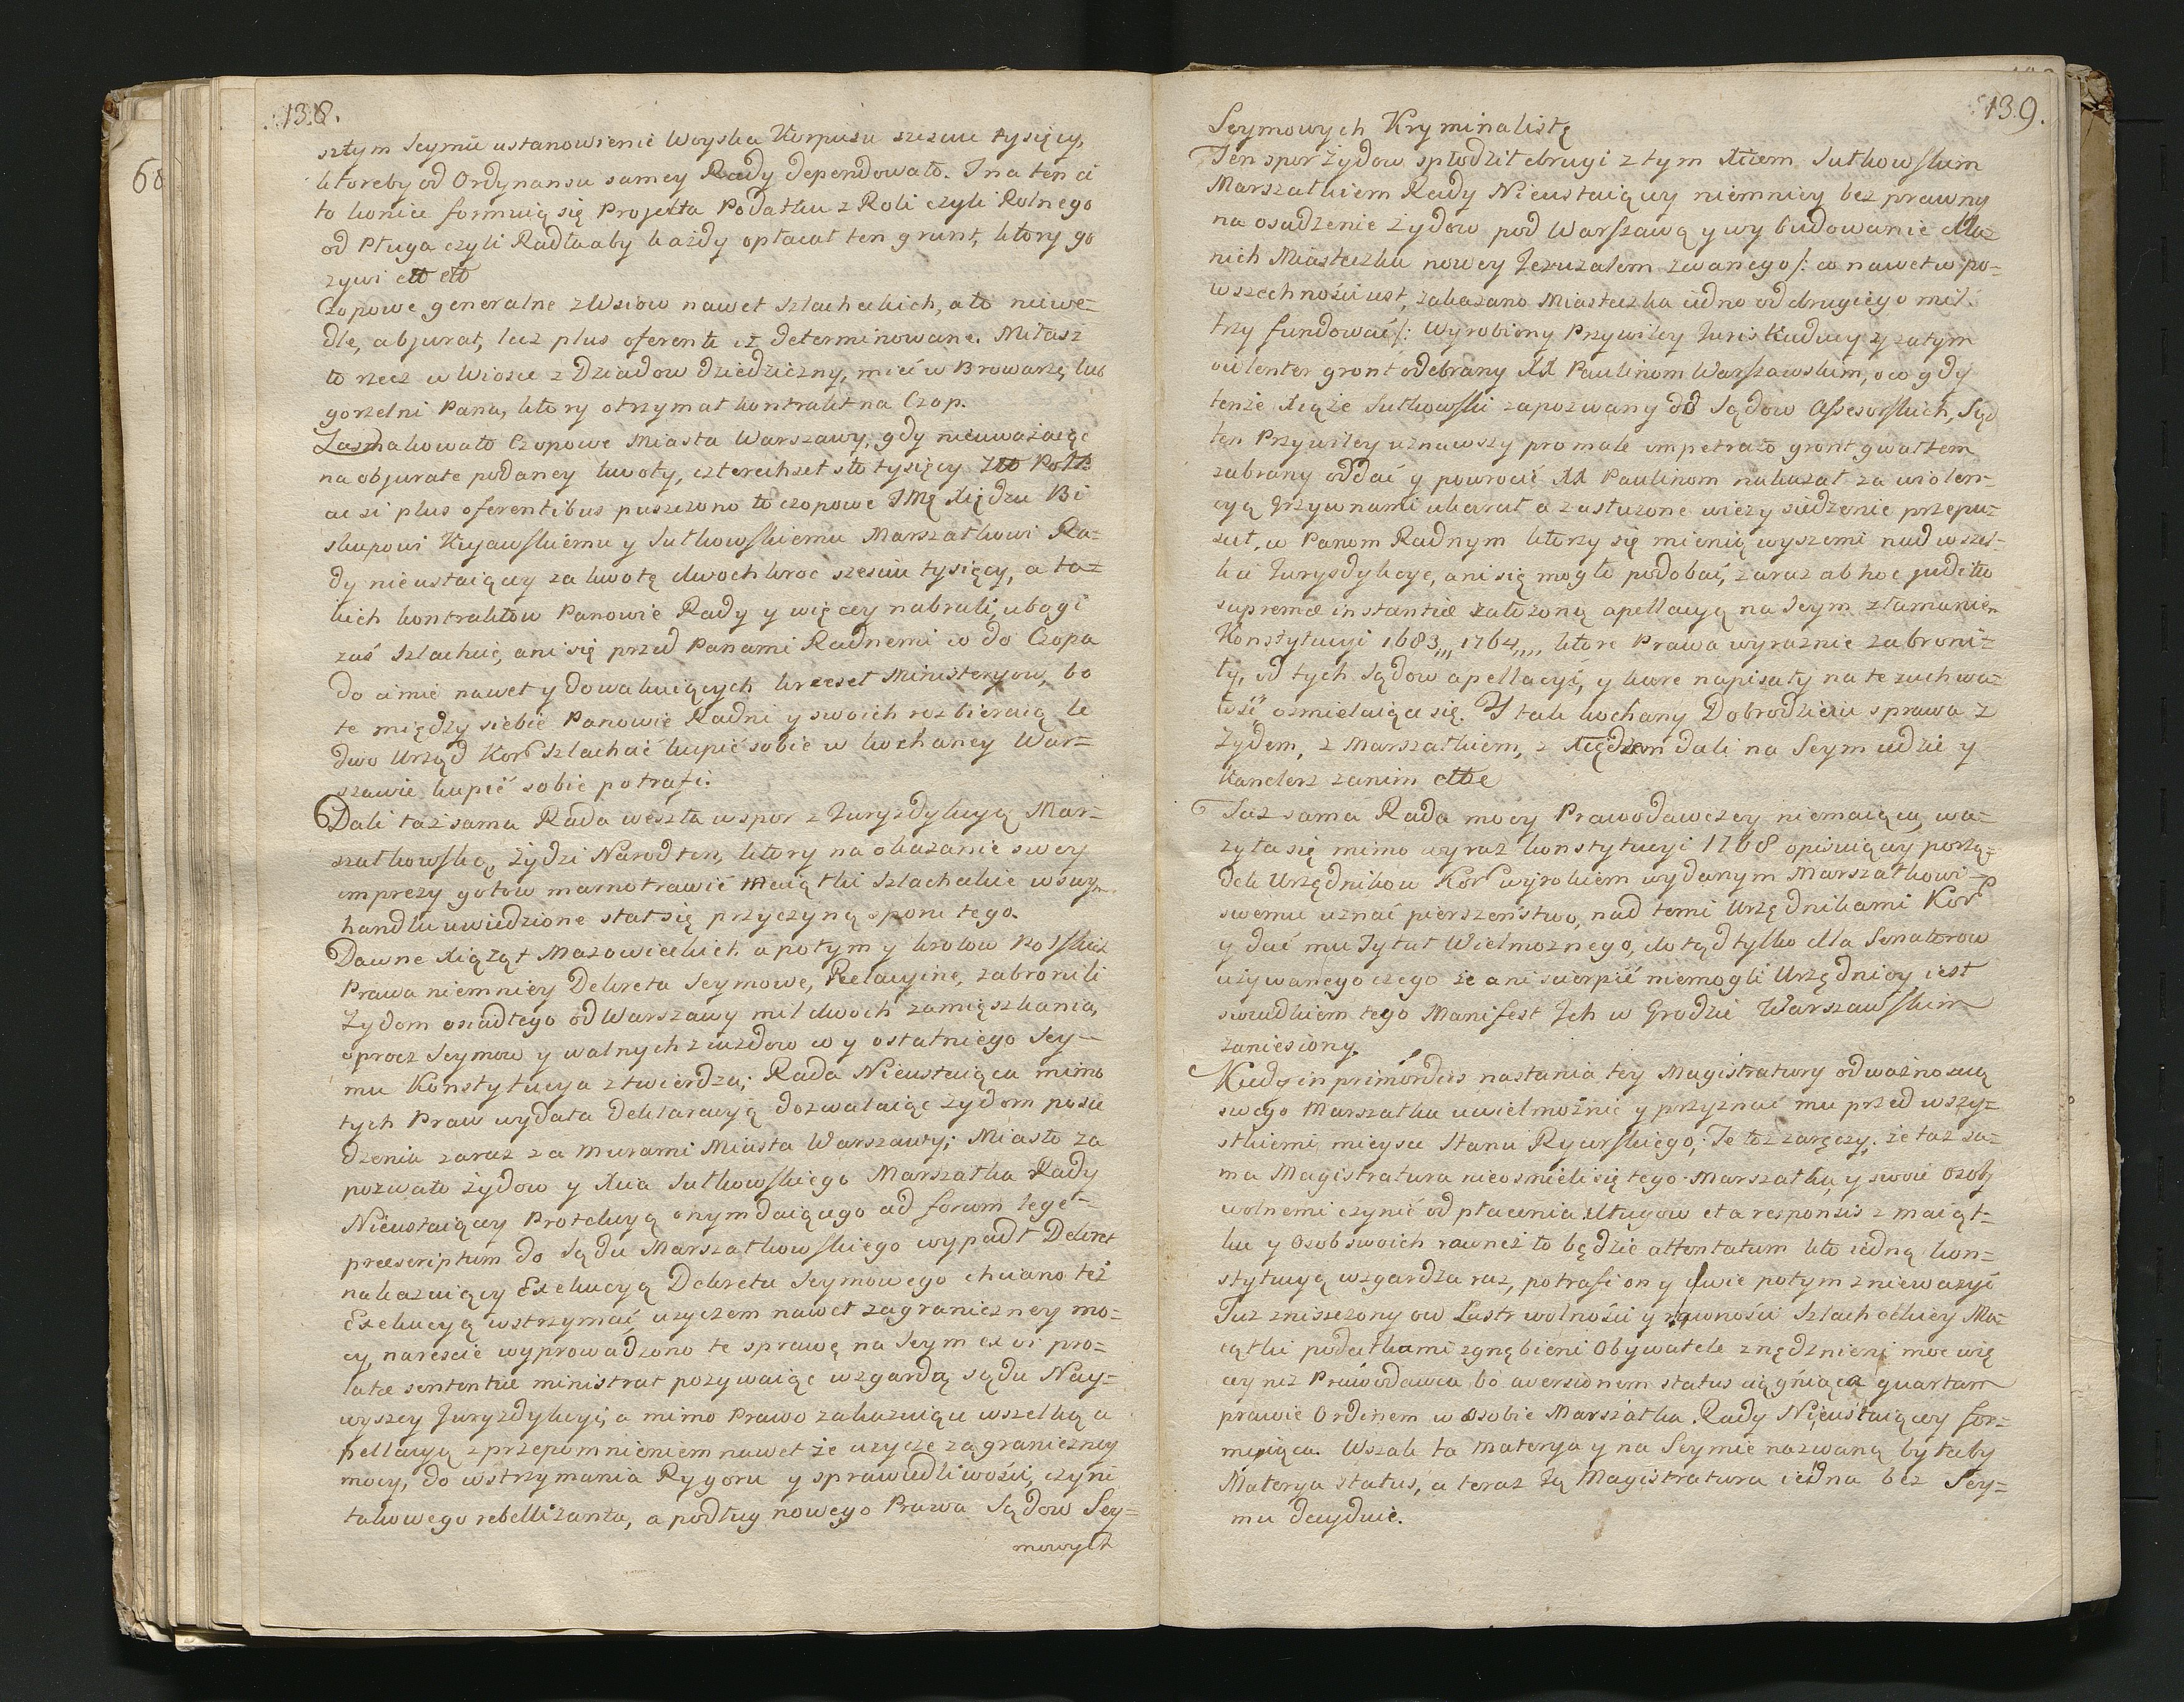 138.
szłym Seymu ustanowienie Woyska Korpusu szesciu tysięcy,
ktoreby od Ordynansu samey Rady dependowało. I na ten ci
to koniec formuią się Projekta Podatku z Roli czyli Rolnego
od Pługa czyli Radła aby każdy opłacał ten grunt, ktory go
zywi etc etc
Czopowe generalne z Wsiow nawet Szlacheckich, a to nie we-
dle, abjurat, lecz plus oferente iest determinowane. Miłasz
to rzecz w Wiosce z Dziadow dziedziczney, mieć w Browarze, lub
gorzelni Pana, ktory otrzymał kontrakt na Czop.
Zasmakowało Czopowe Miasta Warszawy, gdy nieuważaiąc
na objurate podaney kwoty, czterechset sto tysięcy Zło Pols.
ac si plus oferentibus puszczono to czopowe JMę Xiędzu Bi
skupowi Kujawskiemu y Sułkowskiemu Marszałkowi Ra-
dy nieustaiącey za kwotę dwochkroc szesciu tysięcy, a ta-
kich kontraktow Panowie Rady y więcey nabrali, ubogi
zaś Szlachcic, ani się przed Panami Radnemi co do Czopa
do cimie nawet y dowakuiących krzeseł Ministeryow, bo
te między siebie Panowie Radni y swoich rozbieraią le
dwo Urząd Kor Szlachcic kupić sobie w kochaney War-
szawie kupić sobie potrafi.
Dali taż sama Rada weszła w spor z Juryzdykcyą Mar-
szałkowską, Żydzi Narod ten, ktory na okazanie swey
imprezy gotow marnotrawić Maiątki Szlacheckie w swym
handlu uwiedzione stał się przyczyną sporu tego.
Dawne Xiążąt Mazowieckich a potym y krolow Polskich
Prawa niemniey Dekreta Seymowe, Relacyine, zabronili
Żydom osiadłego od Warszawy mil dwoch zamięszkania,
oprocz Seymow y walnych ziazdow co y ostatniego Sey-
mu Konstytucya ztwierdza; Rada Nieustaiąca mimo
tych Praw wydała deklaracyą dozwalaiąc Żydom posie
dzenia zaraz za murami Miasta Warszawy; Miasto za
pozwało Żydow y Xcia Sułkowskiego Marszałka Rady
Nieustaiącey Protekcyą onym daiącego ad forum lege-
praescriptum do Sądu Marszałkowskiego wypadł Dekret
nakazuiący Exekucyą Dekretu Seymowego chciano też
Exekucyą wstrzymać, użyczem nawet zagraniczney mo-
cy, nareszcie wyprowadzono te sprawę na Seym ex vi pro-
latae sententiae ministrat pozywaiąc wzgardą sądu Nay-
wyszey Juryzdykcyi, a mimo Prawo zakazuiące wszelką a
pellacyą z przepomnieniem nawet że użycie zagraniczney
mocy, do wstrzymania Rygoru y sprawiedliwości, czyni
takowego rebellizanta, a podług nowego Prawa Sądow Sey-
mowych
139.
Seymowych Kryminalistę
Ten spor Żydow spłodził drugi z tym Xciem Sułkowskim
Marszałkiem Rady Nieustaiącey niemniey bez prawny
na osadzenie Żydow pod Warszawą y wybudowanie dla-
nich Miasteczka nowey Jeruzalem zwanego /: co nawet w po-
wszechności iest, zakazano Miasteczka iedno od drugiego mil
trzy fundować/: wyrobiony Przywiley Juris kaducy y zatym
violenter gront odebrany XX Paulinom Warszawskim, o co gdy
tenże Xiąże Sułkowski zapozwany do Sądow Assesorskich, Sąd
ten Przywiley uznawszy pro male impetrato gront gwałtem
zabrany oddać y powrocić XX Paulinom nakazał za violen-
cyą Grzywnami ukarał a zasłużone wieży siedzenie przepu-
scił, co Panom Radnym ktorzy się mienią wyszemi nad wszel-
kie Jurysdykcye, ani się mogło podobać, zaraz ab hoc judicio
supremae instantiae założoną apellacyą na Seym złamaniem
Konstytucyi 1683,,, 1764,,,, ktore Prawa wyraznie zabroni-
ły, od tych Sądow apellacyi, y kare napisały na te zuchwa-
łość osmielaiące się. Y tak kochany Dobrodzieiu sprawa z
Żydem, z Marszałkiem, z Xiędzem dali na Seym idzie y
kanclerz zanim etc
Taż sama Rada mocy Prawodawczey niemaiąca, wa-
żyła się mimo wyraz konstytucyi 1768 opisuiącey porzą-
dek Urzędnikow Kor wyrokiem wydanym Marszałkowi-
swemu uznać pierszeństwo, nad temi Urzędnikami Kor
y dać mu Tytuł Wielmożnego, dotąd tylko dla Senatorow
używanego czego że ani scierpić niemogli Urzędnicy, iest
swiadkiem tego Manifest Ich w Grodzie Warszawskim
zaniesiony.
Kiedy in primordiis nastania tey Magistratury odważno scią
swego Marszałka uwielmożnić y przyznać mu przed wszy-
stkiemi mieysce Stanu Rycerskiego; Je toż zaręczy, że taż sa-
ma Magistratura nieosmieli się tego Marszałka, y swoie Osoby
wolnemi czynić od płacenia długow et a responsis z maiąt-
ku y Osob swoich rownez to będzie attentatum kto iedną kon-
stytucyą wzgardza raz, potrafi on y dwie potym znieważyć
Juz zniszczony ow Lustr wolności y rowności Szlacheckiey Ma-
iątki podatkami zgnębieni Obywatele znędznieni moc wię
cey niż Prawodawca bo aversionem status ciągniąca quartam
prawie Ordinem w osobie Marszałka Rady Nieustaiącey for-
muiąca. Wszak ta materya y na Seymie nazwaną byłaby
Materya status, a teraz Ją Magistratura iedna bez Sey-
mu decyduie.